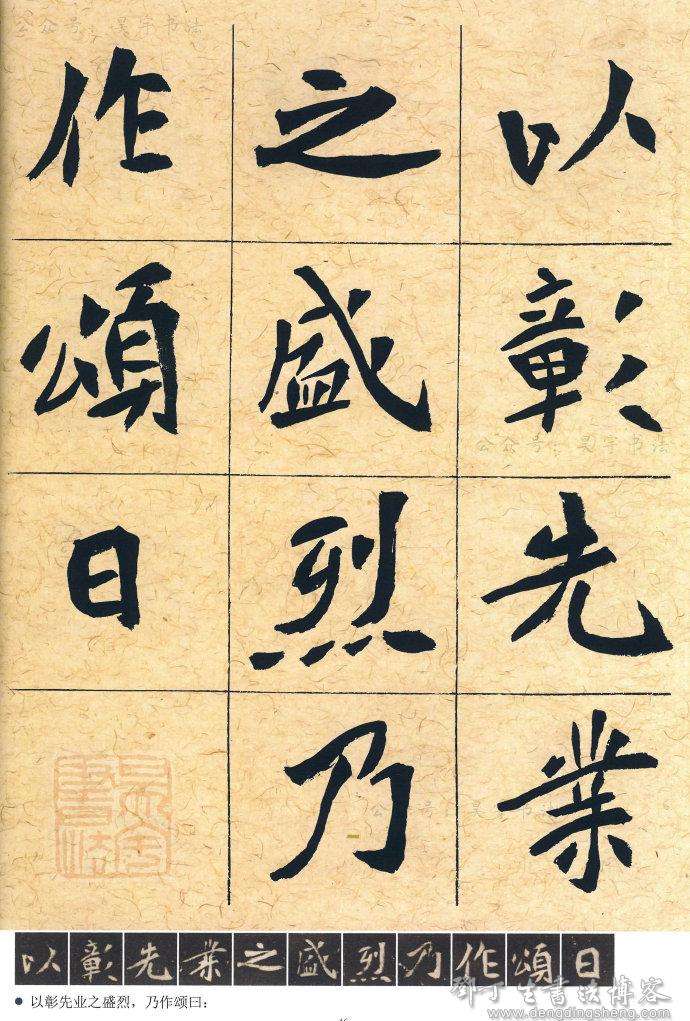 公众号：昊宇书法
以彰先業
之盛烈乃
作頌曰
公众号：昊宇书法
公众号：昊宇书法
以彰先業之盛烈乃作頌曰
以彰先业之盛烈，乃作颂曰：
邓丁生書法博客
www.dengdingsheng.com
46